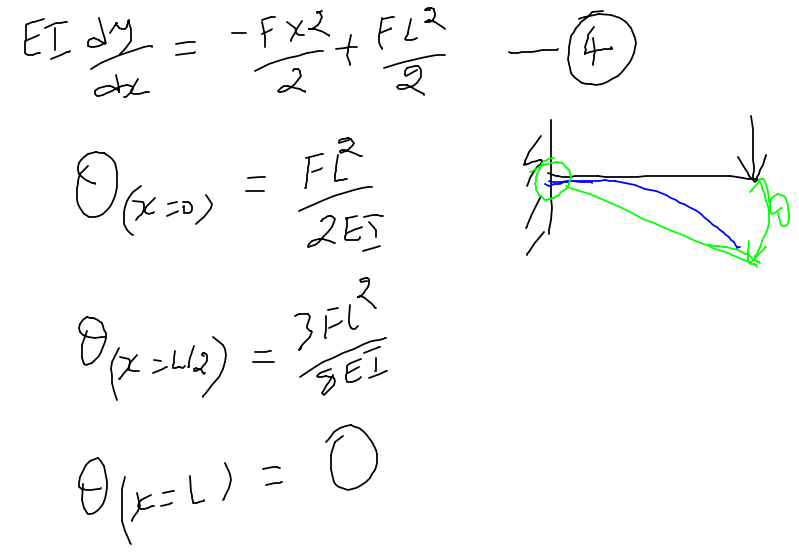 EI dy/dx = -Fx2/2 + FL²/2 — ④
θ(x=0) = FL²/2EI
θ
θ(x=L/2) = 3FL²/8EI
θ(x=L) = 0